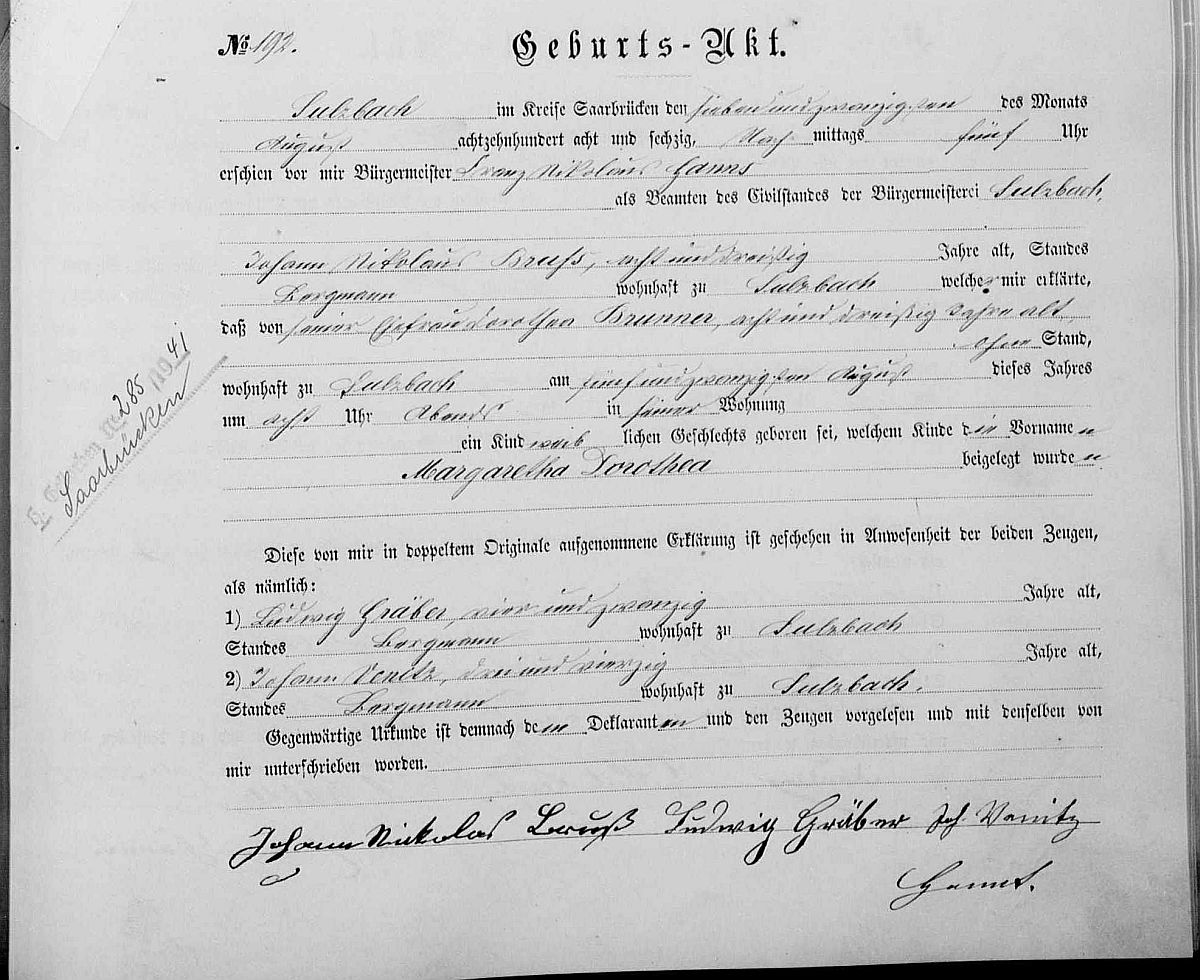 No 192.
Geburts-Akt.
Sulzbach im Kreise Saarbrücken den sieben und zwanzigsten des Monats
August achtzehnhundert acht und sechzig, Nach mittags fünf Uhr
erschien vor mir Bürgermeister Franz Nikolaus
als Beamten des Civilstandes der Bürgermeisterei Sulzbach,
Johann Nikolaus Bruß, acht und dreißig Jahre alt, Standes
Bergmann wohnhaft zu Sulzbach welcher mir erklärte,
daß von seiner Ehefrau Dorothea Brunner, acht und dreißig Jahre alt,
ohne Stand,
wohnhaft zu Sulzbach am fünf und zwanzigsten August dieses Jahres
um acht Uhr Abends in seiner Wohnung
ein Kind weib lichen Geschlechts geboren sei, welchem Kinde die Vornamen
Margaretha Dorothea beigelegt wurden
Diese von mir in doppeltem Originale aufgenommene Erklärung ist geschehen in Anwesenheit der beiden Zeugen,
als nämlich:
1) Ludwig Gräber, vier und zwanzig Jahre alt,
Standes Bergmann wohnhaft zu Sulzbach
2) Johann Venitz, drei und vierzig Jahre alt,
Standes Bergmann wohnhaft zu Sulzbach.
Gegenwärtige Urkunde ist demnach dem Deklaranten und den Zeugen vorgelesen und mit denselben von
mir unterschrieben worden.
Johann Nickolas Bruß Ludwig Gräber Joh. Venitz
285 1941
Saarbrücken